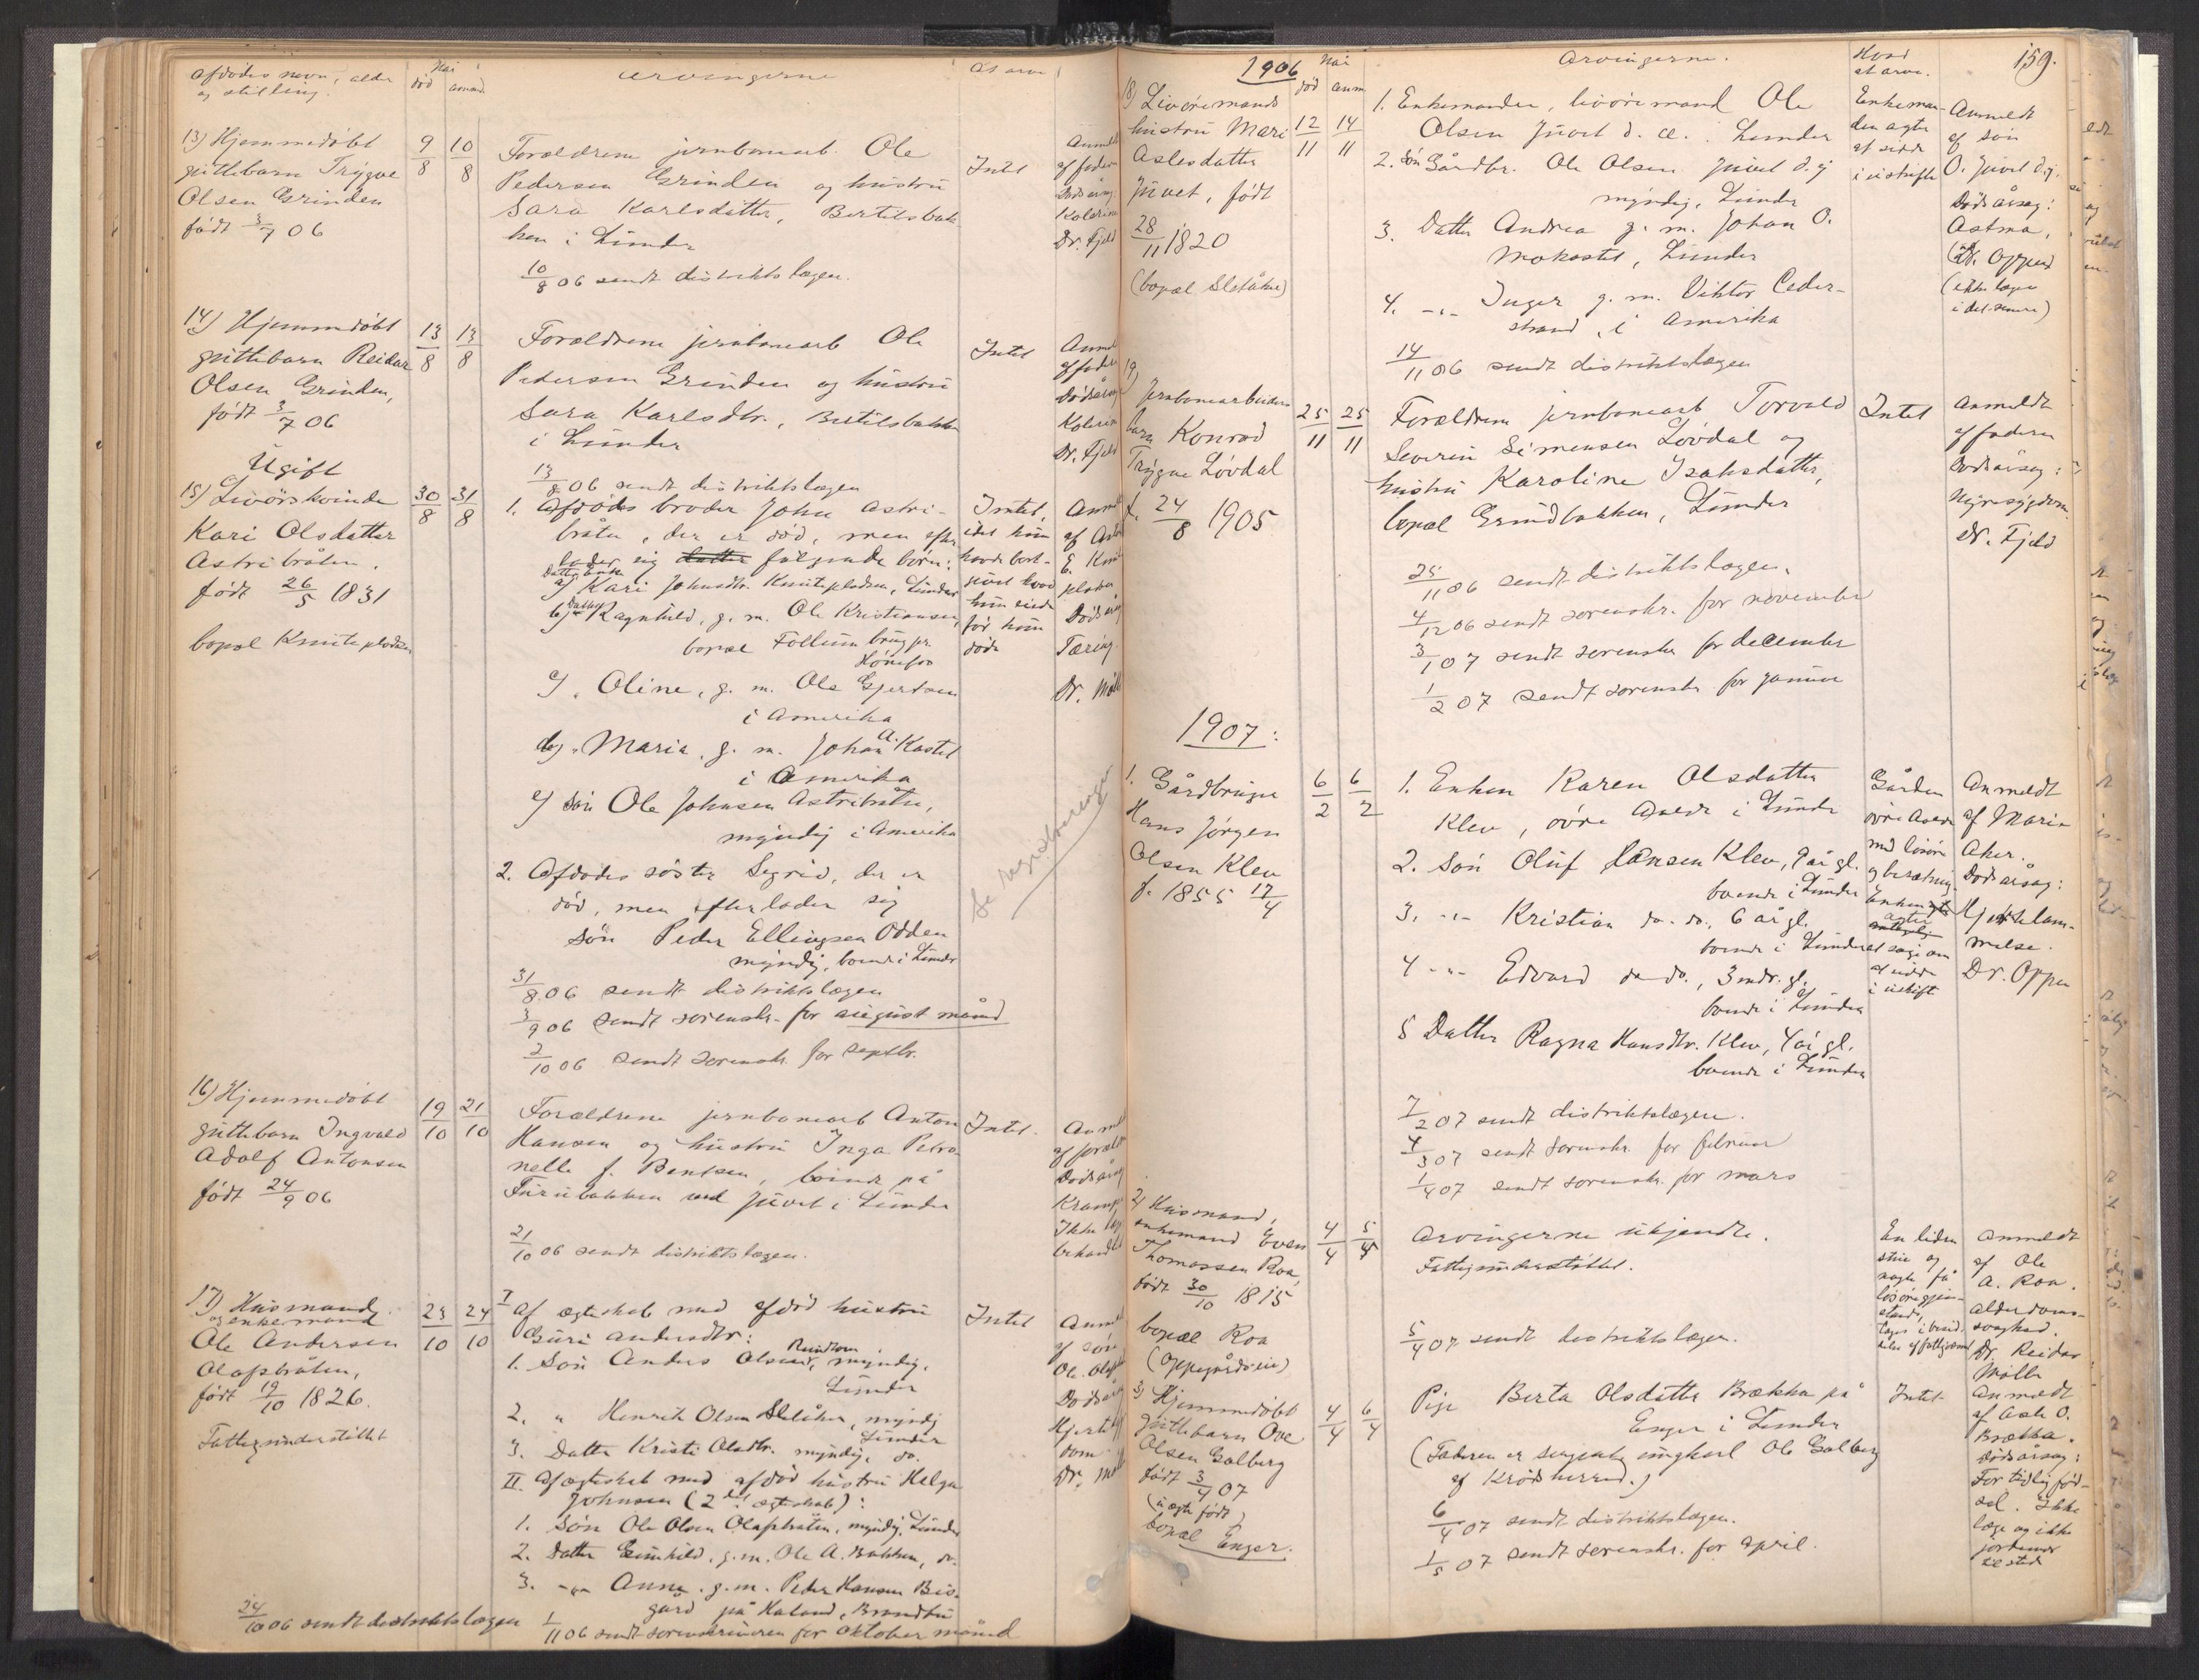 Afdødes navn, alder
og stilling.
Når
død
anm.
Arvingerne
At arve
13) Hjemmedøbt
guttebarn Trygve
Olsen Grinden
født 3/7 06
9/8
10/8
Forældrene jernbanearb. Ole
Pedersen Grinden og hustru
Sara Karlsdatter, Bertilsbak-
ken i Lunder
10/8 06 sendt distriktslægen.
Intet
Anmeldt
af faderen
Dødsårsag
Kolerine
Dr. Fjeld
14) Hjemmedøbt
guttebarn Reidar
Olsen Grinden,
født 3/7 06
13/8
13/8
Forældrene jernbanearb Ole
Pedersen Grinden og hustru
Sara Karlsdtr., Bertilsbakken
i Lunder
13/8 06 sendt distriktslægen
Intet
Anmeldt
af faderen
Dødsårsag
Kolerine
Dr. Fjeld
Ugift
15) Livørskvinde
Kari Olsdatter
Astribråten.
født 26/5 1831
bopæl Knutepladsen
30/8
31/8
1. Afdødes broder John Astri-
bråten, der er død, men efter-
lader sig datter følgende børn:
Datter Enke
a) Kari Johnsdtr. Knutepladsen, Lunder
b) Datter Ragnhild, g. m. Ole Kristiansen,
bopæl Follum brug pr.
Hønefos
c) " Oline, g. m. Ole Gjertsen
i Amerika
d) " Maria, g. m. Johan A. Kastet
i Amerika
e) Søn Ole Johnsen Astribråten,
myndig i Amerika
2. Afdødes søster Sigrid, der er
død, men efterlader sig
søn Peder Ellingsen Odden
myndig, boende i Lunder
31/8 06 sendt distriktslægen
3/9 06 sendt sorenskr. for august måned
2/10 06 sendt sorenskr. for septbr.
Intet,
idet hun
havde bort-
givet hvad
hun eiede
før hun
døde
Anmeldt
af
E. Knute-
pladsen
Dødsårsag
Tæring.
Dr. Møller
Se registreringer
16) Hjemmedøbt
guttebarn Ingvald
Adolf Antonsen
født 24/9 06
19/10
21/10
Forældrene jernbanearb Anton
Hansen og hustru Inga Petro-
nelle f. Bentsen, boende på
Furubakken ved Juvet i Lunder
21/10 06 sendt distriktslægen.
Intet.
Anmeldt
af forældrene
Dødsårsag
Krampe
Ikke læge-
behandlet
17) Husmand
og enkemand
Ole Andersen
Olapbråten,
født 19/10 1826.
Fattigunderstøttet
23/10
24/10
I Af ægteskab med afdød hustru
Guri Andersdtr:
1. Søn Anders Olsen Rundtom, myndig.
Lunder
2. " Henrik Olsen Sletåker, myndig
Lunder
3. Datter Kristi Olsdtr. myndig, do.
II. Af ægteskab med afdød hustru Helga
Johnsen (2det ægteskab):
1. Søn Ole Olsen Olapbråten, myndig. Lunder
2. Datter Gunhild, g. m. Ole A. Bakken, do.
3. -"- Anne, g. m. Peder Hansen Bis-
gård på Haland, Brandbu
24/10 06 sendt distriktslægen
1/11 06 sendt sorenskriveren for oktober måned
Intet
Anmeldt
af søn
Ole Olap
Dødsårsag
Hjertesyg
dom.
Dr. Møller
1906
Når
død
anm
Arvingerne.
Hvad
at arve.
159.
18) Livøremands
hustru Mari
Aslesdatter
Juvet, født
28/11 1820
(bopæl Sletåker)
12/11
14/11
1. Enkemanden, livøremand Ole
Olsen Juvet d. æ. Lunder
2. Søn Gårdbr. Ole Olsen Juvet d. y
myndig, Lunder
3. Datter Andrea g. m. Johan O.
Mokastet, Lunder
4. -"- Inger g. m. Viktor Ceder-
strand, i Amerika
14/11 06 sendt distriktslægen
Enkeman-
den agter
at sidde
i uskifte
Anmeldt
af søn
O. Juvet d.y.
Dødsårsag:
Astma,
(Dr. Oppen
(ikke læge
i det senere)
19)
Jernbanearbeider-
barn Konrad
Trygve Løvdal
f. 24/8 1905
25/11
25/11
Forældrene jernbanearb Torvald
Severin Simensen Løvdal og
hustru Karoline Isaksdatter,
bopæl Grindbakken, Lunder
25/11 06 sendt distriktslægen.
4/12 06 sendt sorenskr. for november
3/1 07 sendt sorenskr for december
1/2 07 sendt sorenskr. for januar
Intet
Anmeldt
af faderen
Dødsårsag:
Nyresygdom.
Dr. Fjeld
1907:
1. Gårdbruger
Hans Jørgen
Olsen Klev
f. 1855 17/4
6/2
6/2
1. Enken Karen Olsdatter
Klev, øvre Aveda i Lunder
2. Søn Oluf Hansen Klev, 9 år gl.
boende i Lunder
3. -"- Kristian do. do. 6 år gl.
boende i Lunder
4 -"- Edvard do do., 3 mdr. gl.
boende i Lunder
5 Datter Ragna Hansdtr. Klev, 4 år gl.
boende i Lunder
7/2 07 sendt distriktslægen.
4/3 07 sendt sorenskr. for februar
1/4 07 sendt sorenskr. for mars
Gården
øvre Aveda
med løsøre
og besætning.
Enken
agter
at søge om
at sidde
i uskift
Anmeldt
af Marin
Aker.
Dødsårsag:
Hjertelam-
melse.
Dr. Oppen
2) Husmand,
enkemand Even
Thomassen Roa,
født 30/10 1815
bopæl Roa
(Oppegårdseie)
4/4
5/4
Arvingerne ukjendte.
Fattigunderstøttet.
5/4 07 sendt distriktslægen.
En liden
stue og
nogle få
løsøregjen-
stande,
tages i besid-
delse af fattigvæsenet
Anmeldt
af Ole
A. Roa.
Alderdoms-
svaghed.
Dr. Reidar
Møller
3) Hjemmedøbt
guttebarn Ove
Olsen Golberg
født 3/4 07
(uægte født)
bopæl Enger.
4/4
6/4
Pige Berta Olsdatter Brækka på
Enger i Lunder
(Faderen er sergeant ungkarl Ole Golberg
af Krødsherred.)
6/4 07 sendt distriktslægen.
1/5 07 sendt sorenskr. for april.
Intet
Anmeldt
af Asle O.
Brække.
Dødsårsag:
For tidlig fød-
sel. Ikke
læge og ikke
jordemor
tilstede